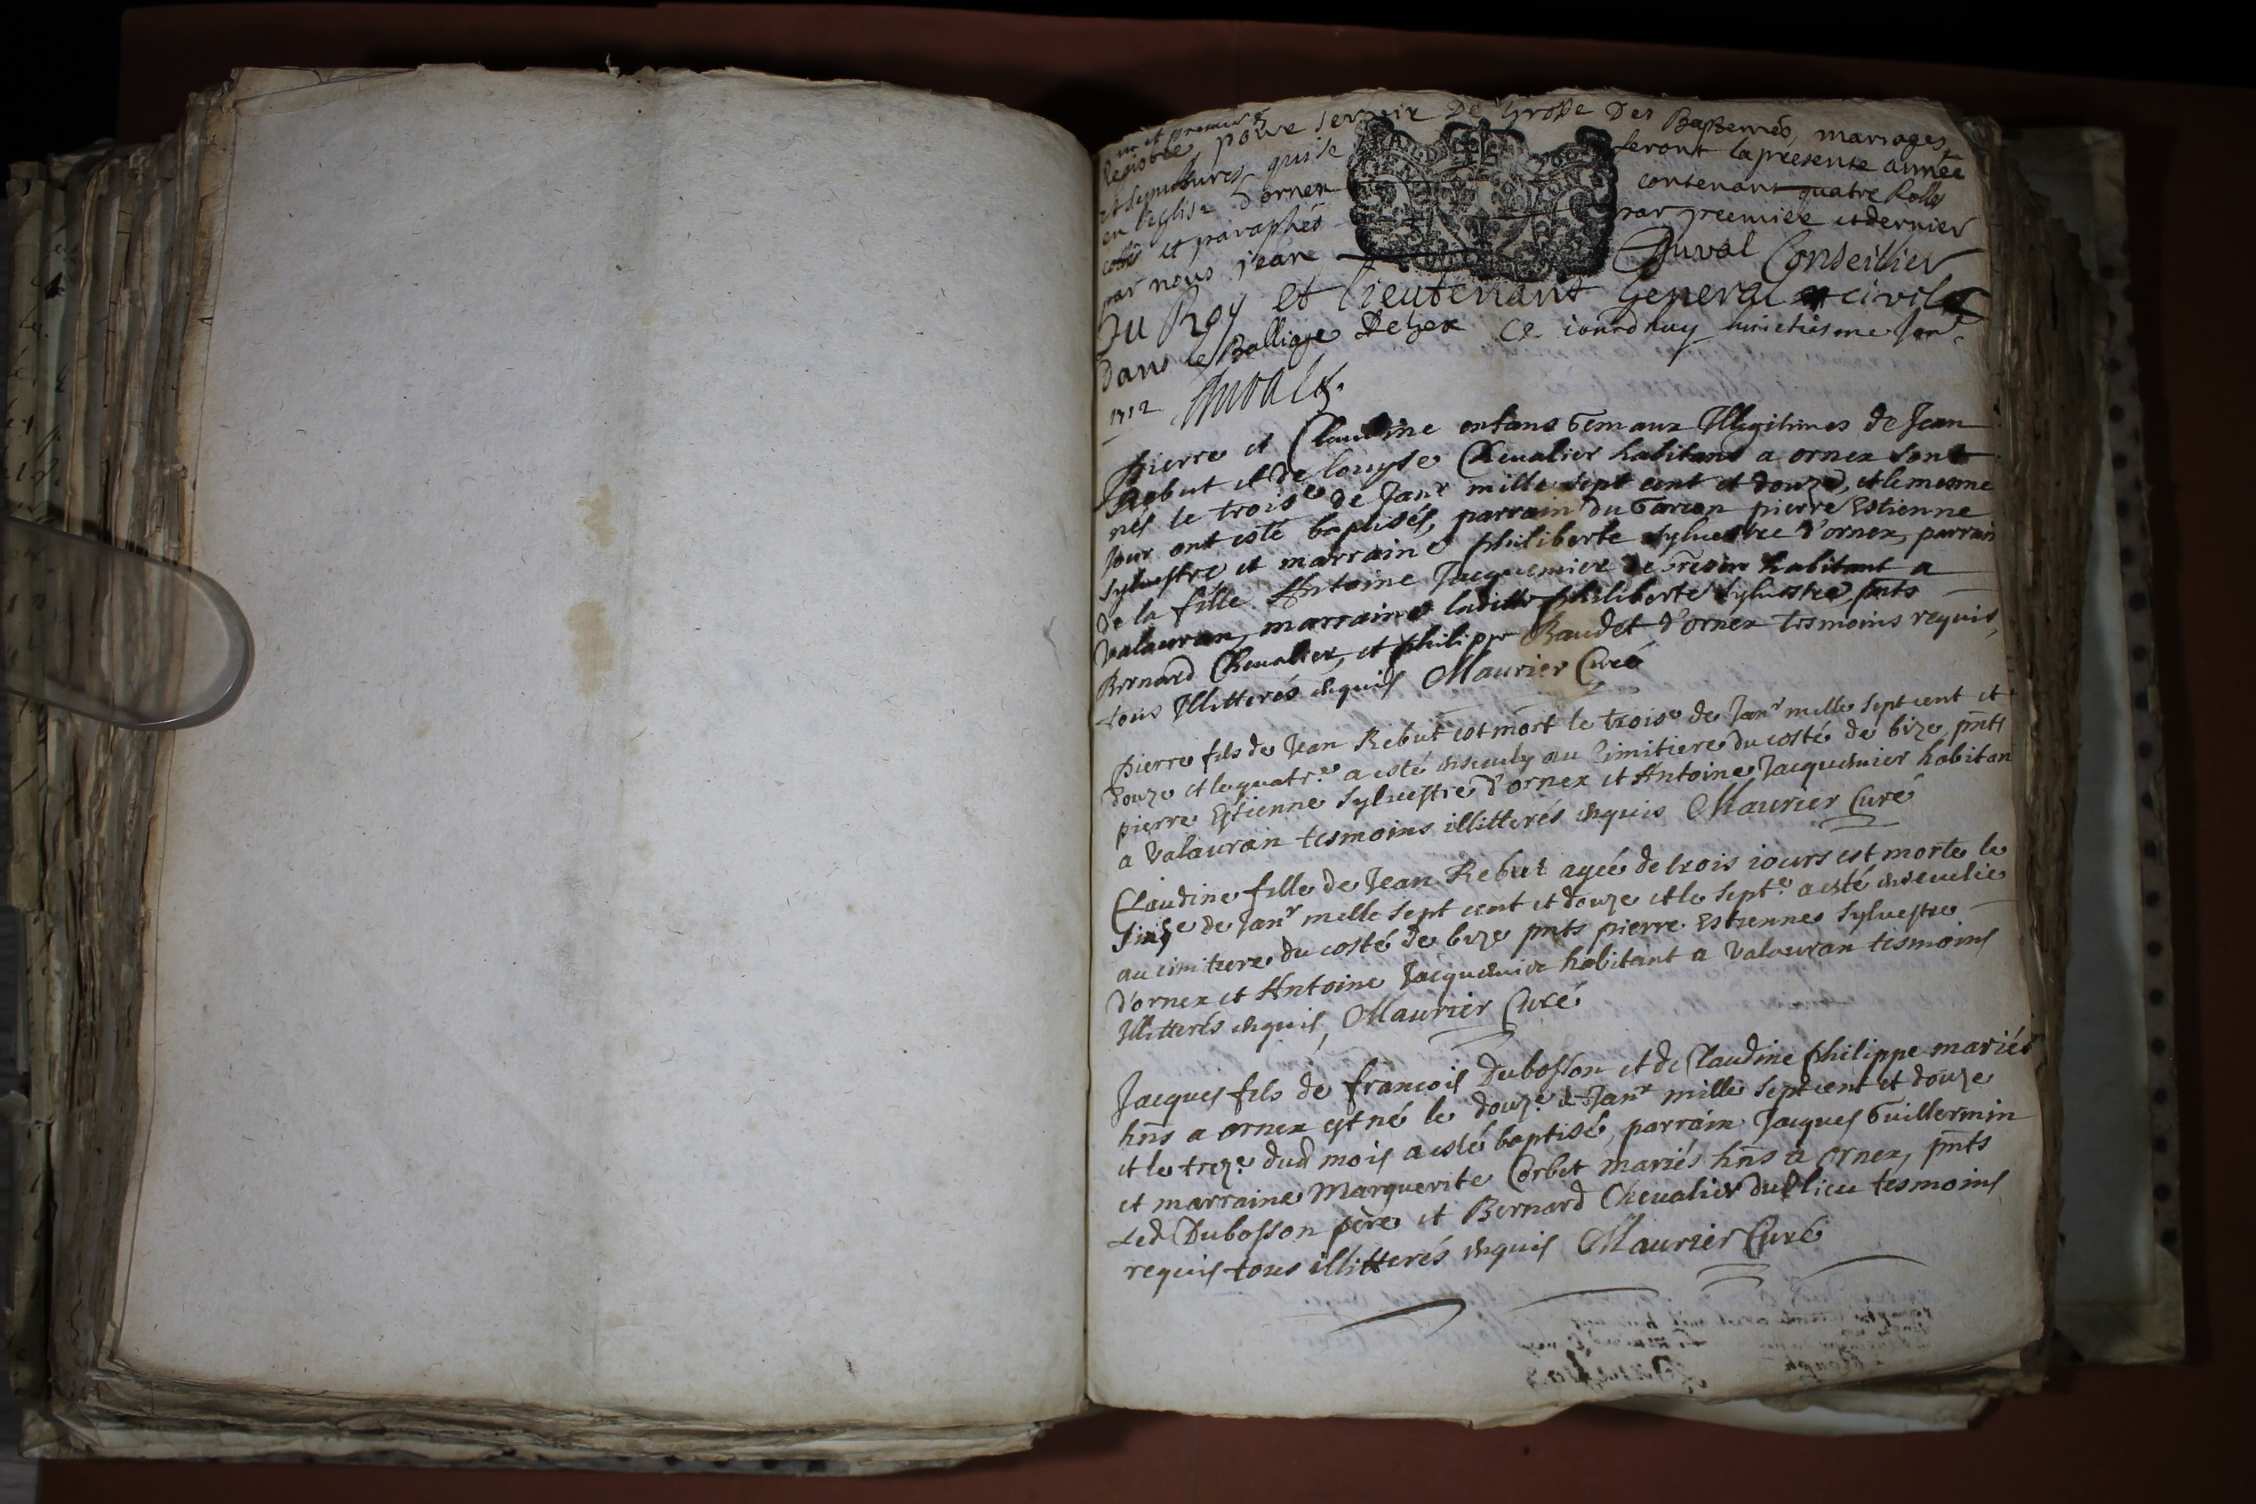 un et premier
Registre, pour servir De Grosse Des Baptemes, mariages
et sepultures quise seront la presente année
en l'eglise D'ornex contenant quatre Rolles
cotté et paraphés par premier et dernier
par nous jean Duval Conseillier
Du Roy et Lieutenant General civil
Dans le Balliage De Gex Ce iourdhuy huictiesme Janr
1712 Duval
Pierre et Claudine enfans Gemaux Illegitimes de Jean
Rebut et de louyse Chevalier habitans a ornex sont
nés le troise de Janr mille sept cent et douze, et le mesme
Jour ont esté baptisés, parrain du Garcon pierre Estienne
Sylvestre et marraine philiberte Sylvestre d'ornex, parrain
de la fille Antoine Jacquemier de habitant a
Valavran, marraine laditte philiberte Sylvestre, pnts
Bernard Chevalier, et philippe Baudet d'ornex tesmoins requis,
tous Illitterés enquis Maurier Curé
Pierre fils de Jean Rebut est mort le troise de Janr mille sept cent et
douze et le quatre a esté enseuly au Cimitiere du costé de bize pnts
pierre Estienne Sylvestre d'ornex et Antoine Jacquemier habitan
a Valavran tesmoins illitterés enquis Maurier Curé
Claudine fille de Jean Rebut agée de trois iours est morte le
de Janr mille sept cent et douze et le septe a esté enseulie
au cimitiere du costé de bize pnts pierre Estienne Sylvestre
d'ornex et Antoine Jacquemier habitant a Valavran tesmoins
Illitterés enquis, Maurier Curé
Jacques fils de francois Dubosson et de Claudine philippe mariés
hñs a ornex est né le douze de Janr mille sept cent et douze
et le treze dud mois a esté baptisé, parrain Jacques Guillermin
et marraine Marguerite Corbet mariés hñs a ornex, pnts
Led Dubosson pere et Bernard Chevalier dud lieu tesmoins
requis tous illitterés enquis Maurier Curé